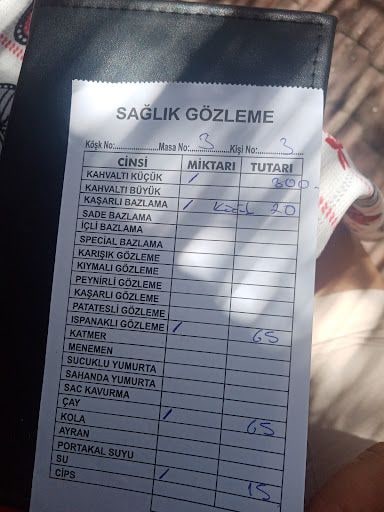 SAĞLIK GÖZLEME
Köşk No:............Masa No:...3...Kişi No:...3...
CİNSİ MİKTARI TUTARI
KAHVALTI KÜÇÜK / 300-
KAHVALTI BÜYÜK
KAŞARLI BAZLAMA / 20
SADE BAZLAMA
İÇLİ BAZLAMA
SPECIAL BAZLAMA
KARIŞIK GÖZLEME
KIYMALI GÖZLEME
PEYNİRLİ GÖZLEME
KAŞARLI GÖZLEME
PATATESLİ GÖZLEME
ISPANAKLI GÖZLEME / 65
KATMER
MENEMEN
SUCUKLU YUMURTA
SAHANDA YUMURTA
SAC KAVURMA
ÇAY
KOLA / 65
AYRAN
PORTAKAL SUYU
SU
CİPS / 15